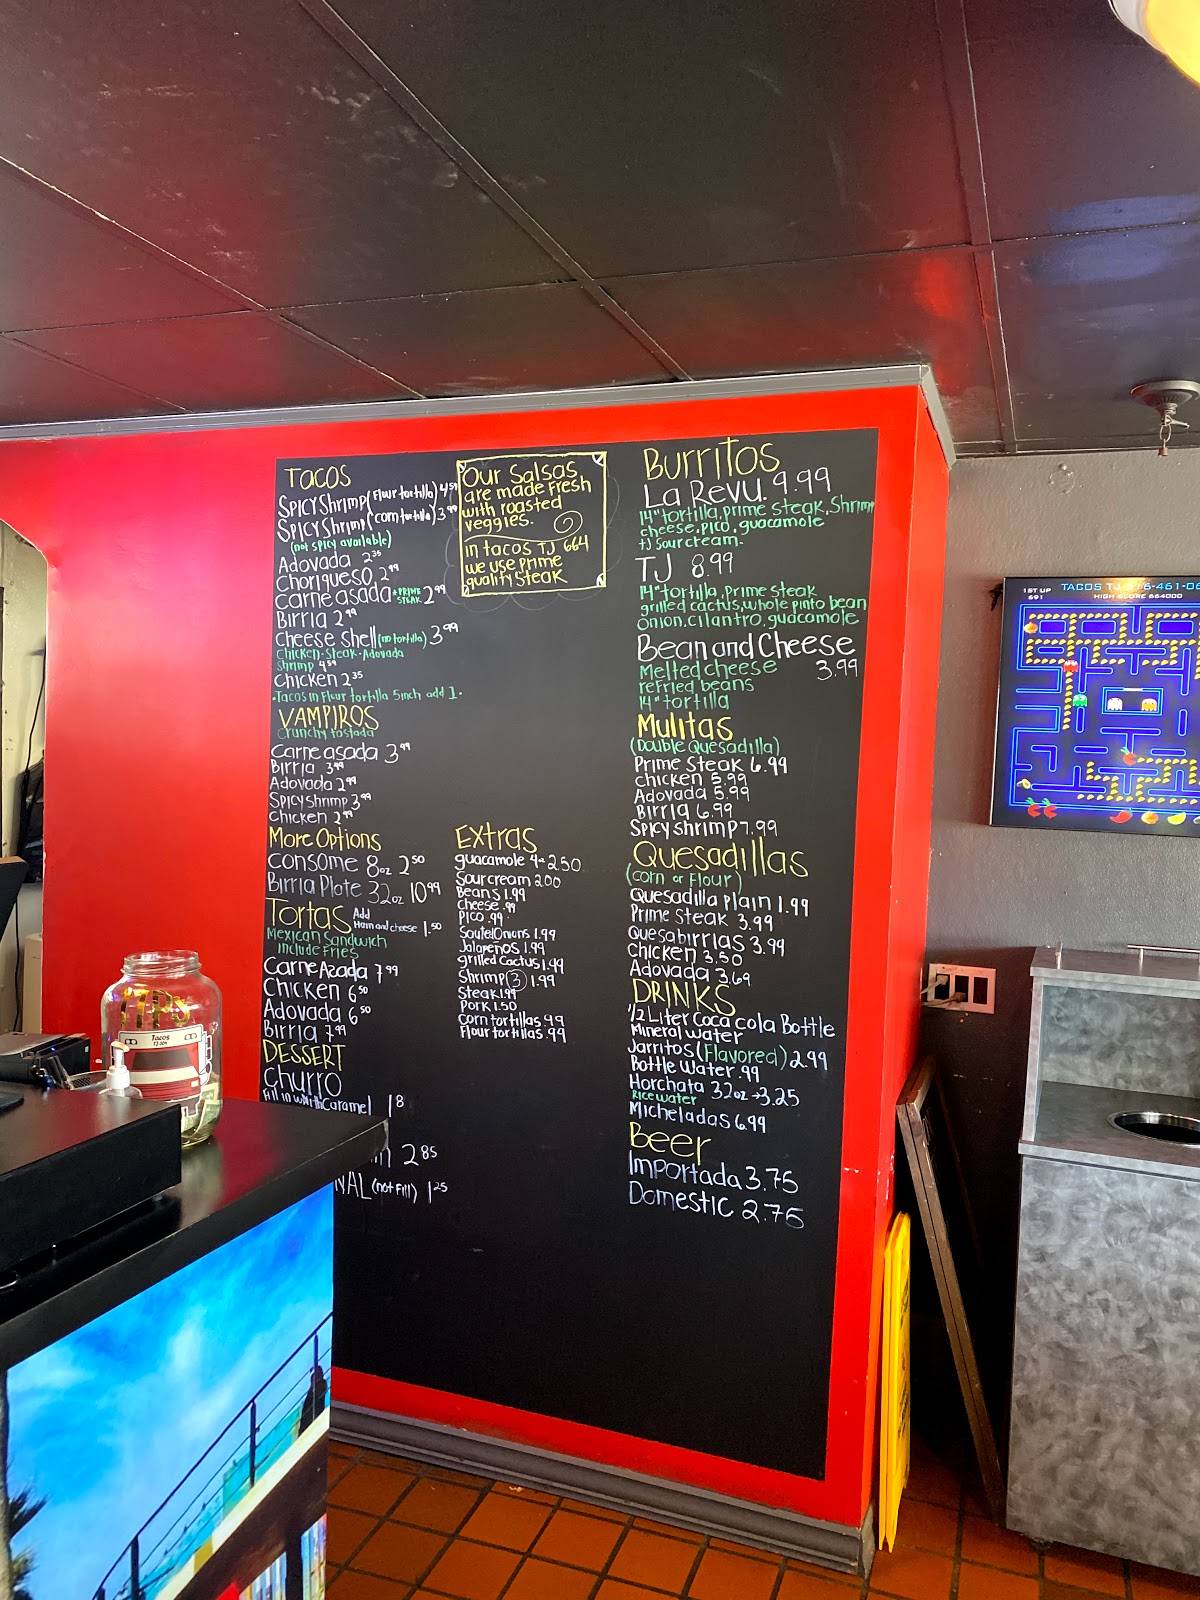 Tacos
Spicy Shrimp (Flour tortilla) 4.59
Spicy Shrimp (corn tortilla) 3.99
(not spicy available)
Adovada 2 35
Chorigueso 2 99
Carne asada *PRIME STEAK 2 99
Birria 2 99
Cheese Shell (no tortilla) 3 99
Chicken - Steak - Adovada
Shrimp 4 59
Chicken 2 35
• Tacos in Flour tortilla 5inch add 1.
VAMPIROS
Crunchy tostada
Carne asada 3 99
Birria 3 99
Adovada 2 99
Spicy Shrimp 3 99
Chicken 2 99
More Options
Consome 8oz 2 50
Birria Plate 32oz 10 99
Tortas Add
Ham and cheese 1.50
Mexican Sandwich
include Fries
Carne Azada 7 99
Chicken 6 50
Adovada 6 50
Birria 7 99
DESSERT
Churro
Fill in with Caramel 1 8
2 85
NAL (not Fill) 1 25
Our Salsas
are made Fresh
with roasted
veggies.
in tacos TJ 664
we use prime
quality steak
Extras
guacamole 4oz 2.50
Sour cream 2.00
Beans 1.99
Cheese .99
Pico .99
Sautel Onions 1.99
Jalapeños 1.99
grilled Cactus 1.99
Shrimp (3) 1.99
Steak 1.99
Pork 1.50
Corn tortillas .99
Flour tortillas .99
Burritos
La Revu. 9.99
14" tortilla, prime steak, Shrimp
cheese, pico, guacamole
TJ Sour cream.
TJ 8.99
14" tortilla, Prime steak
grilled cactus, whole pinto bean
Onion, cilantro, guacamole
Bean and Cheese
Melted cheese 3.99
refried beans
14" tortilla
Mulitas
(Double Quesadilla)
Prime Steak 6.99
Chicken 5.99
Adovada 5.99
Birria 6.99
Spicy shrimp 7.99
Quesadillas
(corn or Flour)
Quesadilla plain 1.99
Prime Steak 3.99
Quesabirrias 3.99
Chicken 3.50
Adovada 3.69
DRINKS
1/2 Liter Coca cola Bottle
Mineral Water
Jarritos (Flavored) 2.99
Bottle Water .99
Horchata 32oz → 3.25
Rice water
Micheladas 6.99
Beer
Importada 3.75
Domestic 2.75
Tacos
1ST UP
691
TACOS TJ
HIGH SCORE 664000